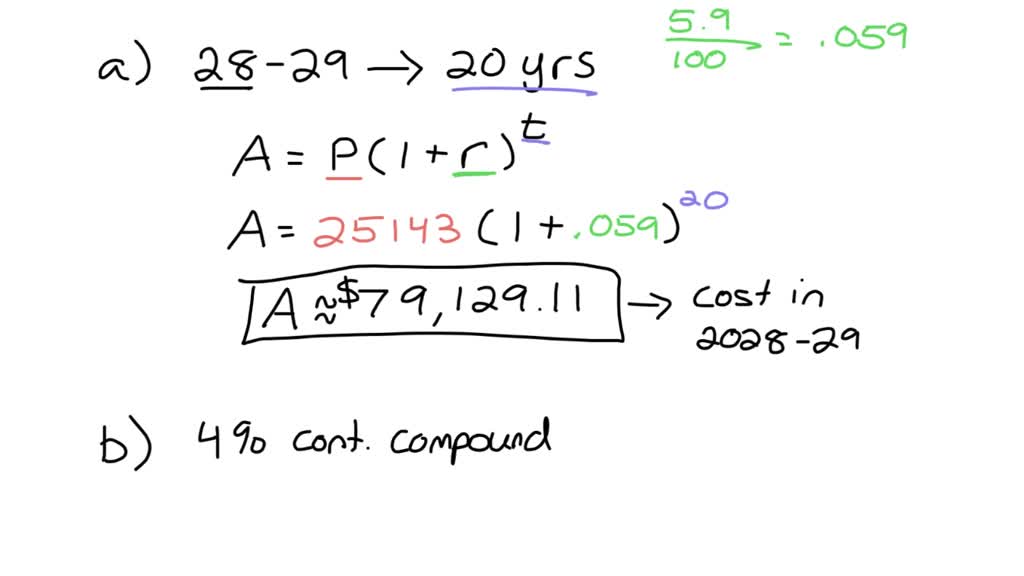 5.9/100 = .059
a) 28-29 → 20 yrs
A = P(1+r)^t
A = 25143 (1+.059)^20
A ≈ $79,129.11 → cost in
2028-29
b) 4% cont. compound